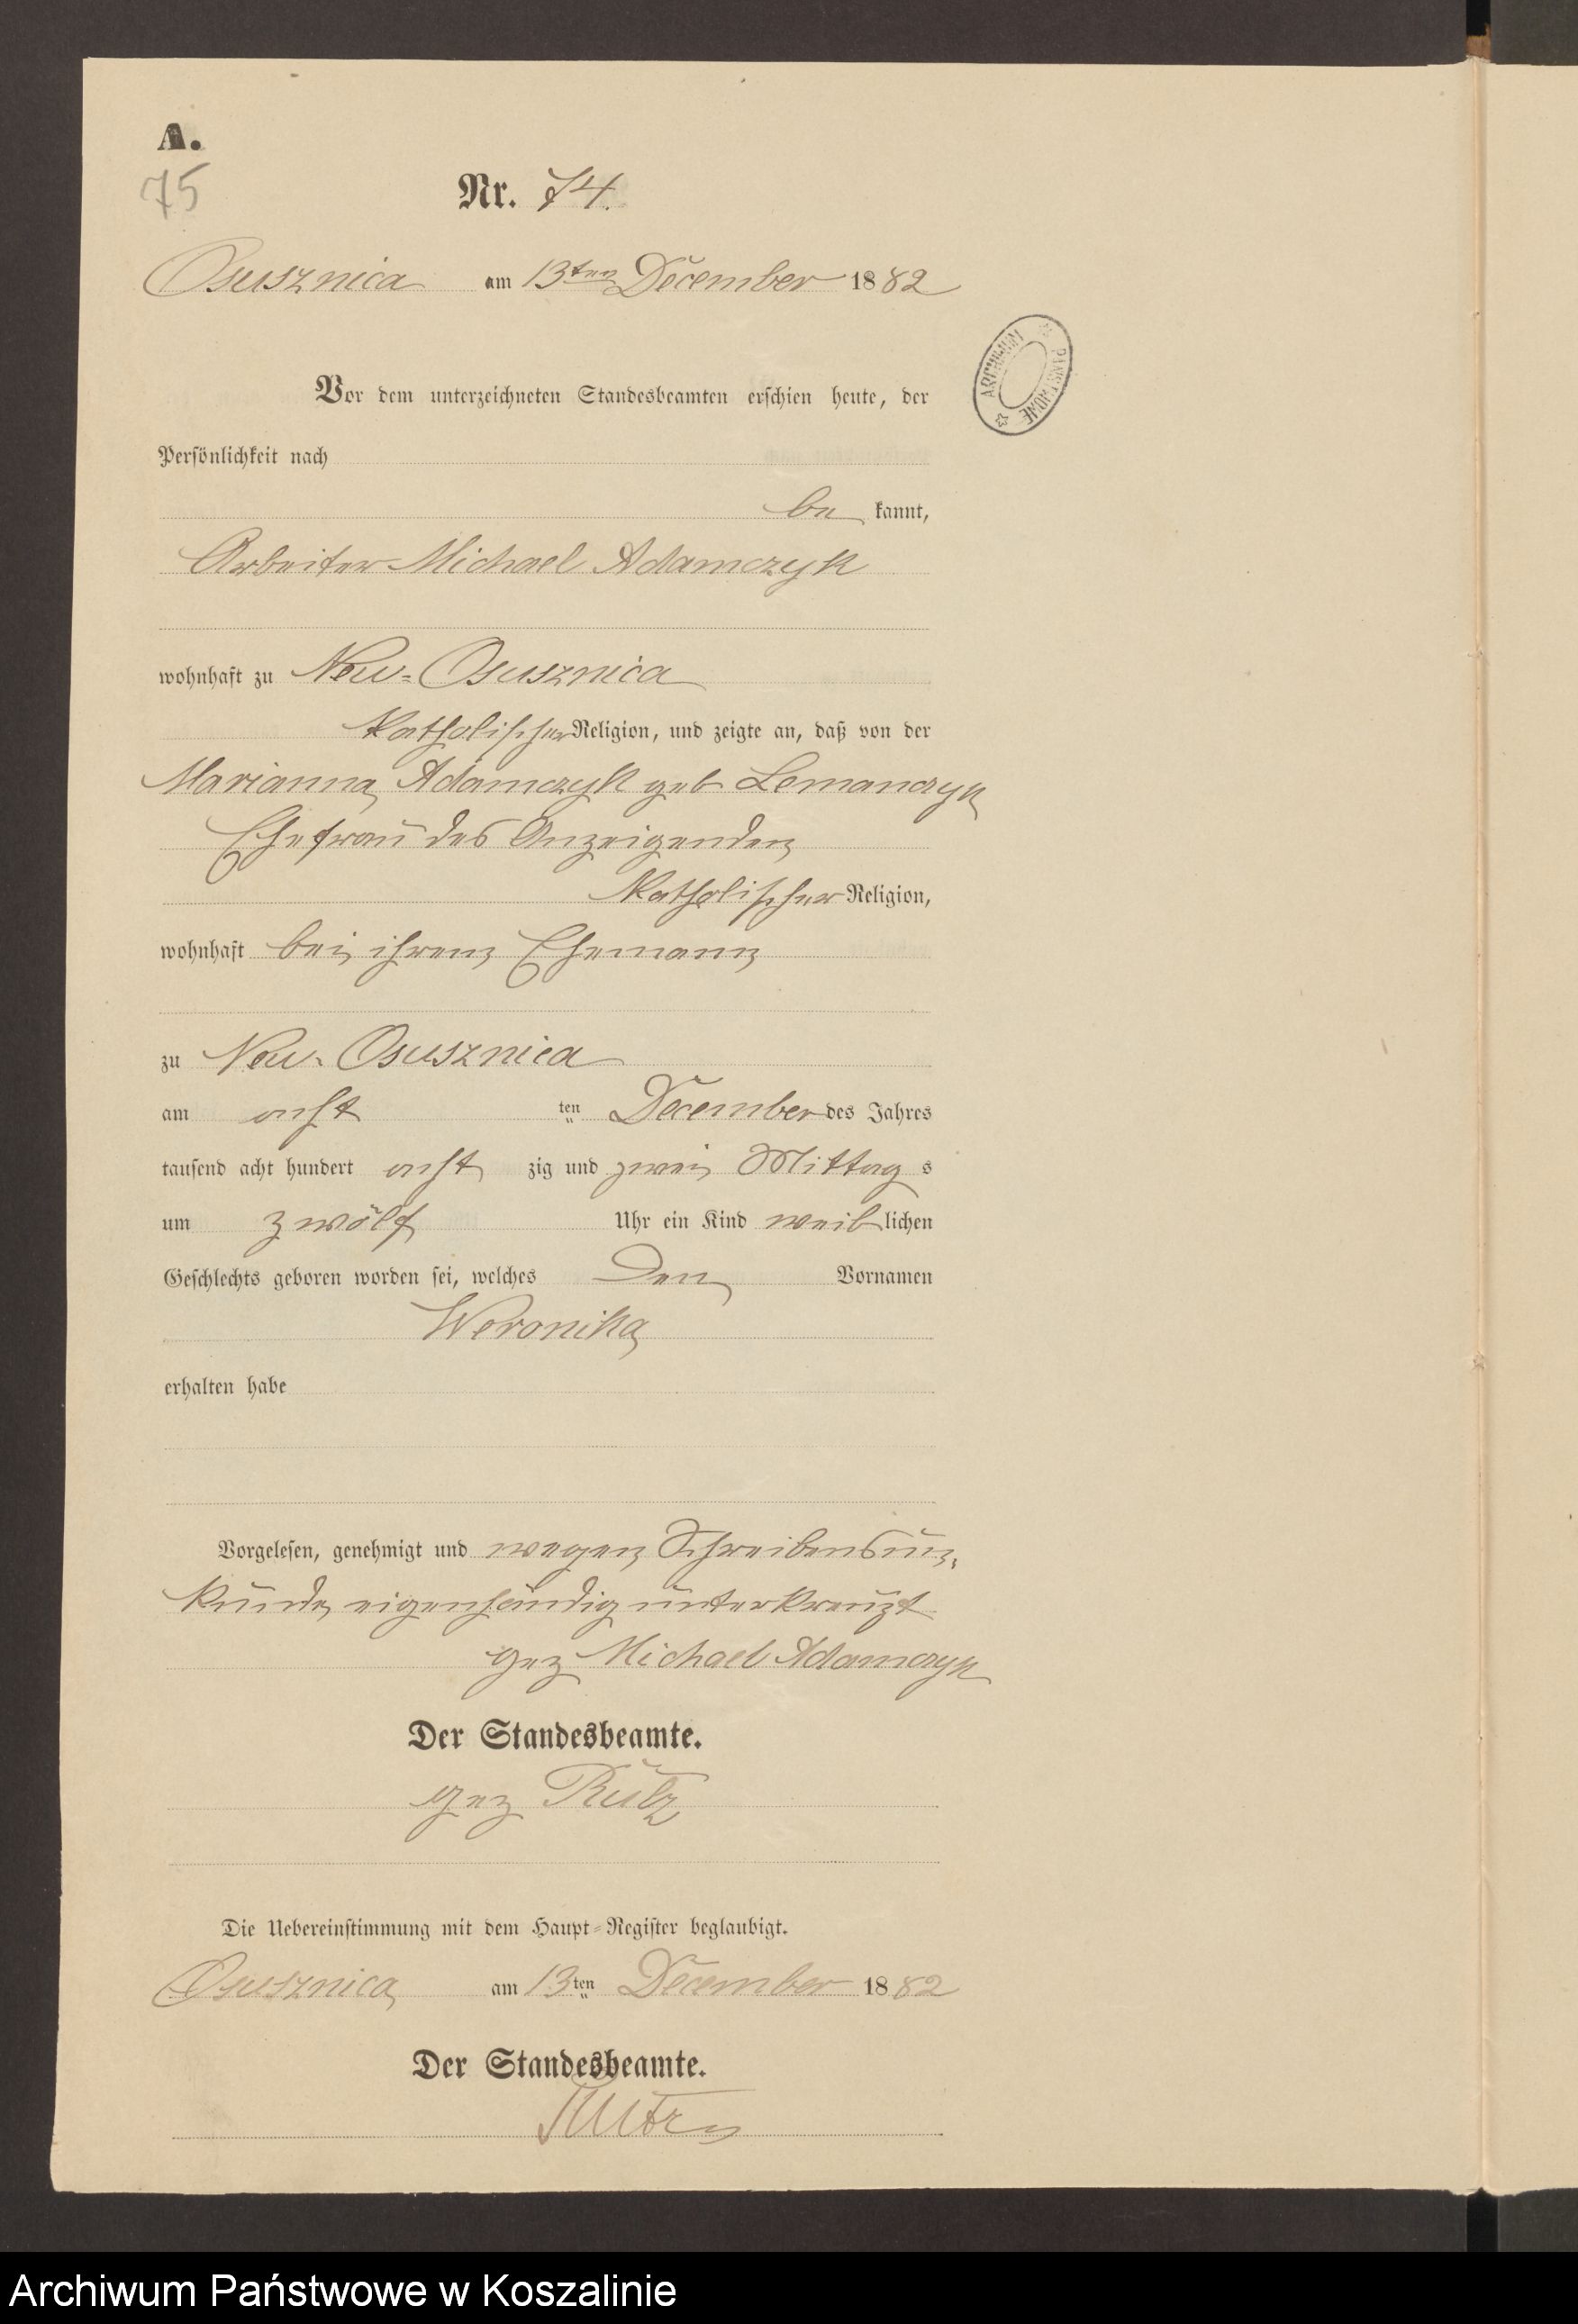 A.
75
Nr. 74.
Osusznica am 13ten December 1882
ARCHIWUM PAŃSTWOWE
Vor dem unterzeichneten Standesbeamten erschien heute, der
Persönlichkeit nach
be kannt,
Arbeiter Michael Adamczyk
wohnhaft zu Neu-Osusznica
katholischer Religion, und zeigte an, daß von der
Marianna Adamczyk geb Lemanczyk
Ehefrau des Anzeigenden
katholischer Religion,
wohnhaft bei ihrem Ehemann
zu Neu-Osusznica
am acht ten December des Jahres
tausend acht hundert acht zig und zwei Mittag s
um zwölf Uhr ein Kind weiblichen
Geschlechts geboren worden sei, welches den Vornamen
Weronika
erhalten habe
Vorgelesen, genehmigt und wegen Schreibensun-
kunde eigenhändig unterkreuzt
gez Michael Adamczyk
Der Standesbeamte.
gez
Die Uebereinstimmung mit dem Haupt-Register beglaubigt.
Osusznica am 13ten December 1882
Der Standesbeamte.
Archiwum Państwowe w Koszalinie